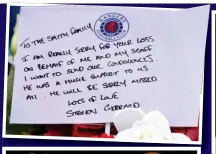 TO THE SMITH FAMILY
I AM REALLY SORRY FOR YOUR LOSS
ON BEHALF OF ME AND MY STAFF
I WANT TO SEND OUR CONDOLENCES.
HE WAS A HUGE SUPPORT TO US
ALL. HE WILL BE SORELY MISSED
LOTS OF LOVE
STEVEN GERRARD